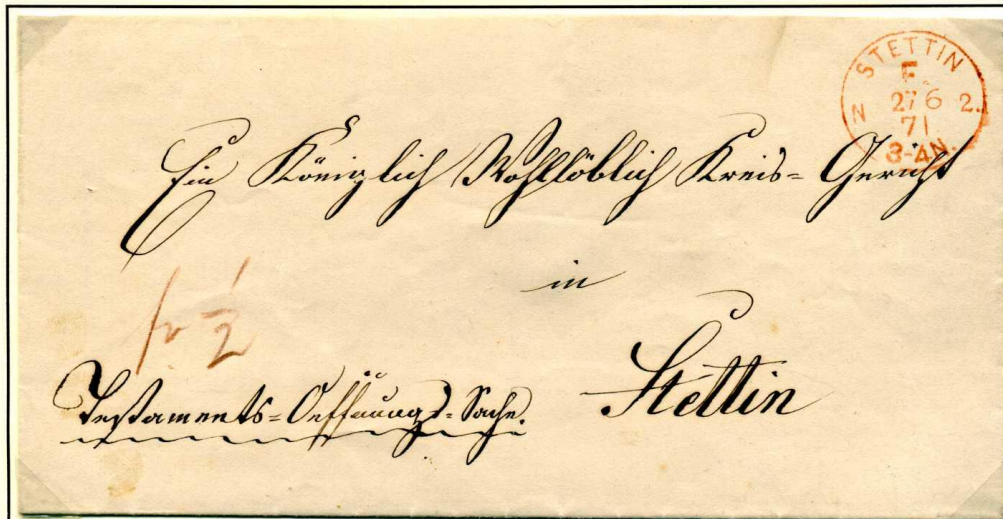 STETTIN
F.
27 6
71
N 2.
3-4N.
Ein Königlich Wohllöblich Kreis= Gericht
in
fr ½
Stettin
Testaments=Oeffnungs=Sache.